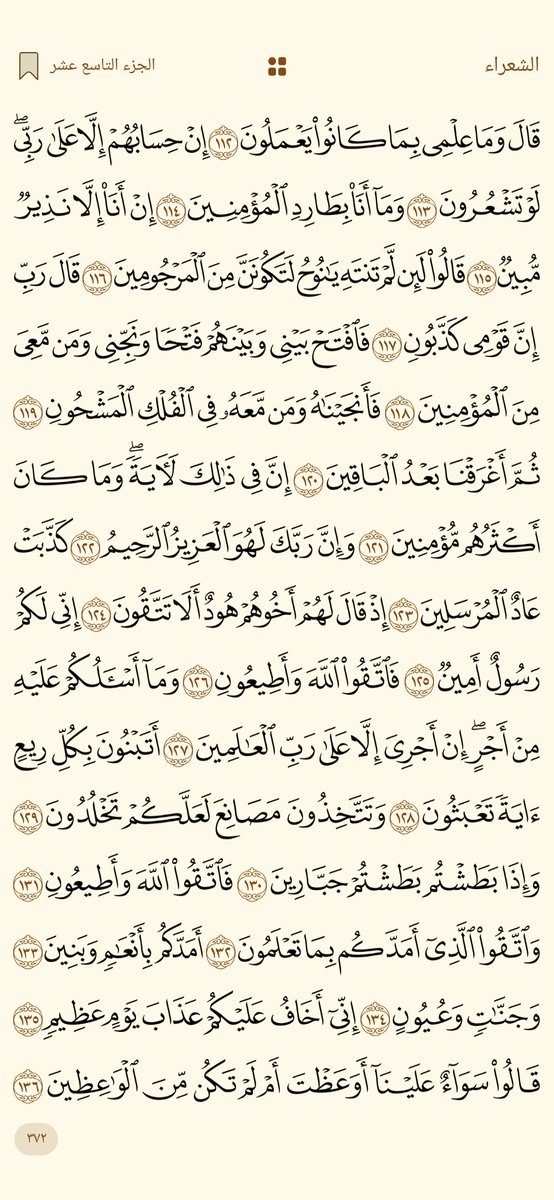 الشعراء
الجزء التاسع عشر
قَالَ وَمَا عِلْمِى بِمَا كَانُوا۟ يَعْمَلُونَ ١١٢ إِنْ حِسَابُهُمْ إِلَّا عَلَىٰ رَبِّىۖ
لَوْ تَشْعُرُونَ ١١٣ وَمَآ أَنَا۠ بِطَارِدِ ٱلْمُؤْمِنِينَ ١١٤ إِنْ أَنَا۠ إِلَّا نَذِيرٌ
مُّبِينٌ ١١٥ قَالُوا۟ لَئِن لَّمْ تَنتَهِ يَـٰنُوحُ لَتَكُونَنَّ مِنَ ٱلْمَرْجُومِينَ ١١٦ قَالَ رَبِّ
إِنَّ قَوْمِى كَذَّبُونِ ١١٧ فَٱفْتَحْ بَيْنِى وَبَيْنَهُمْ فَتْحًا وَنَجِّنِى وَمَن مَّعِىَ
مِنَ ٱلْمُؤْمِنِينَ ١١٨ فَأَنجَيْنَـٰهُ وَمَن مَّعَهُۥ فِى ٱلْفُلْكِ ٱلْمَشْحُونِ ١١٩
ثُمَّ أَغْرَقْنَا بَعْدُ ٱلْبَاقِينَ ١٢٠ إِنَّ فِى ذَٰلِكَ لَـَٔايَةًۖ وَمَا كَانَ
أَكْثَرُهُم مُّؤْمِنِينَ ١٢١ وَإِنَّ رَبَّكَ لَهُوَ ٱلْعَزِيزُ ٱلرَّحِيمُ ١٢٢ كَذَّبَتْ
عَادٌ ٱلْمُرْسَلِينَ ١٢٣ إِذْ قَالَ لَهُمْ أَخُوهُمْ هُودٌ أَلَا تَتَّقُونَ ١٢٤ إِنِّى لَكُمْ
رَسُولٌ أَمِينٌ ١٢٥ فَٱتَّقُوا۟ ٱللَّهَ وَأَطِيعُونِ ١٢٦ وَمَآ أَسْـَٔلُكُمْ عَلَيْهِ
مِنْ أَجْرٍۖ إِنْ أَجْرِىَ إِلَّا عَلَىٰ رَبِّ ٱلْعَـٰلَمِينَ ١٢٧ أَتَبْنُونَ بِكُلِّ رِيعٍ
ءَايَةً تَعْبَثُونَ ١٢٨ وَتَتَّخِذُونَ مَصَانِعَ لَعَلَّكُمْ تَخْلُدُونَ ١٢٩
وَإِذَا بَطَشْتُم بَطَشْتُمْ جَبَّارِينَ ١٣٠ فَٱتَّقُوا۟ ٱللَّهَ وَأَطِيعُونِ ١٣١
وَٱتَّقُوا۟ ٱلَّذِىٓ أَمَدَّكُم بِمَا تَعْلَمُونَ ١٣٢ أَمَدَّكُم بِأَنْعَـٰمٍ وَبَنِينَ ١٣٣
وَجَنَّـٰتٍ وَعُيُونٍ ١٣٤ إِنِّىٓ أَخَافُ عَلَيْكُمْ عَذَابَ يَوْمٍ عَظِيمٍ ١٣٥
قَالُوا۟ سَوَآءٌ عَلَيْنَآ أَوَعَظْتَ أَمْ لَمْ تَكُن مِّنَ ٱلْوَٰعِظِينَ ١٣٦
٣٧٢